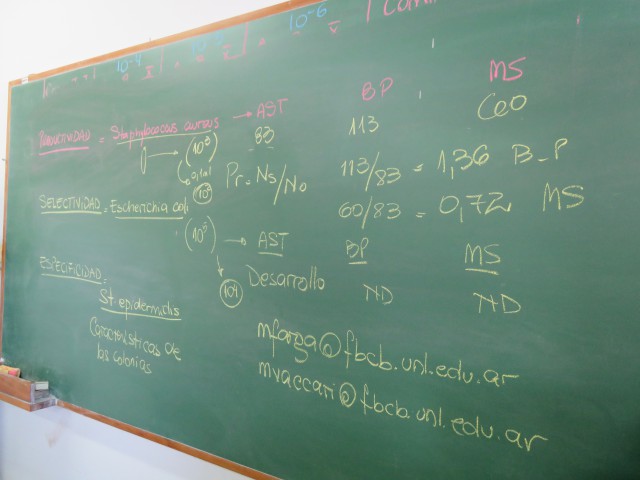 10⁻⁴ 10⁻⁶
PRODUCTIVIDAD = Staphylococcus aureus → AST BP MS
83 113 60
(10⁸)
Pr = Ns/No 113/83 = 1,36 B-P
SELECTIVIDAD = Escherichia coli 60/83 = 0,72 MS
→ AST BP MS
(10⁴) Desarrollo ND ND
ESPECIFICIDAD =
St. epidermidis
Características de
las colonias
mfarga@fbcb.unl.edu.ar
mvaccari@fbcb.unl.edu.ar